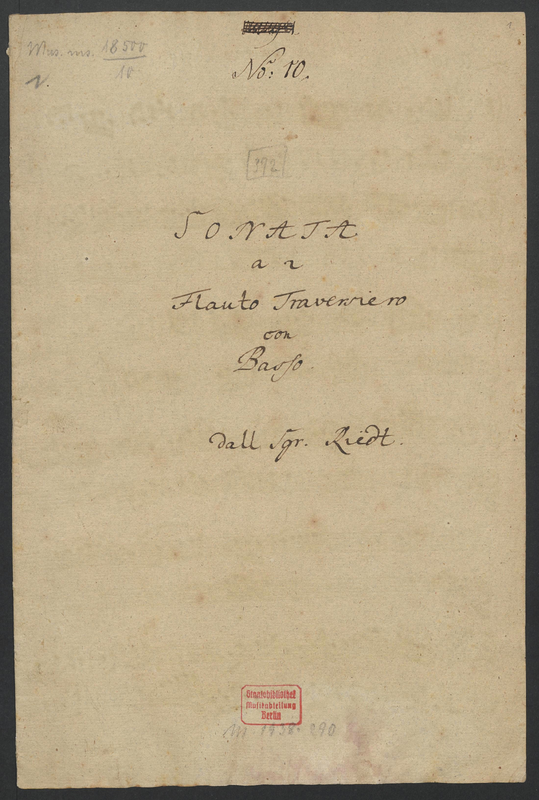 Mus. ms. 18500
10
No: 10.
[392]
SONATA
a 2
Flauto Traversiero
con
Basso.
dall Sgr. Riedt.
Staatsbibliothek
Musikabteilung
Berlin
M 1938. 890